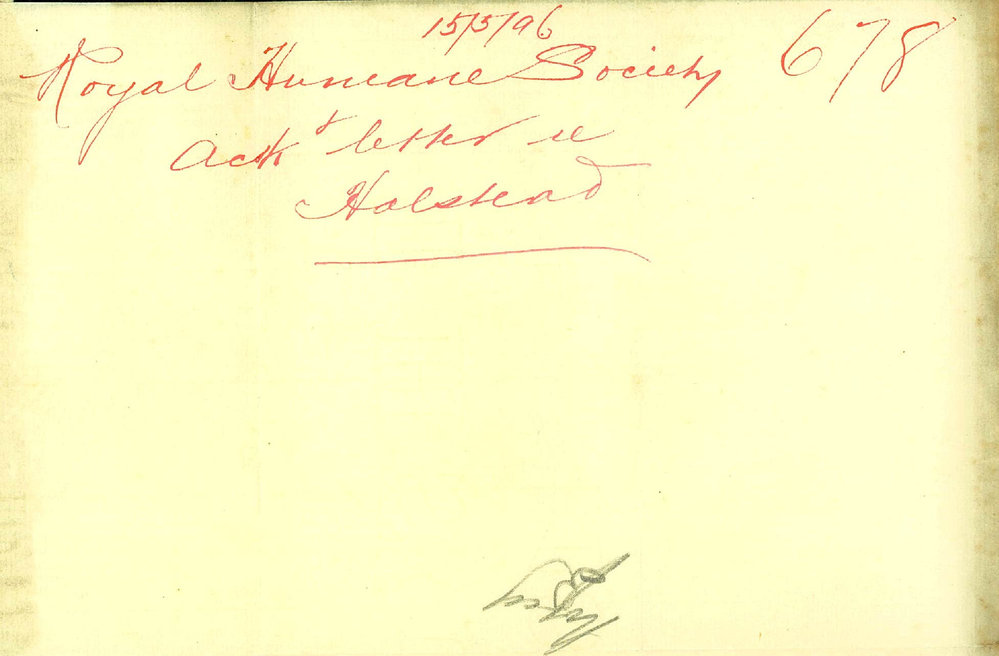 15/5/96
Royal Humane Society 678
Ack letter re
Halstead